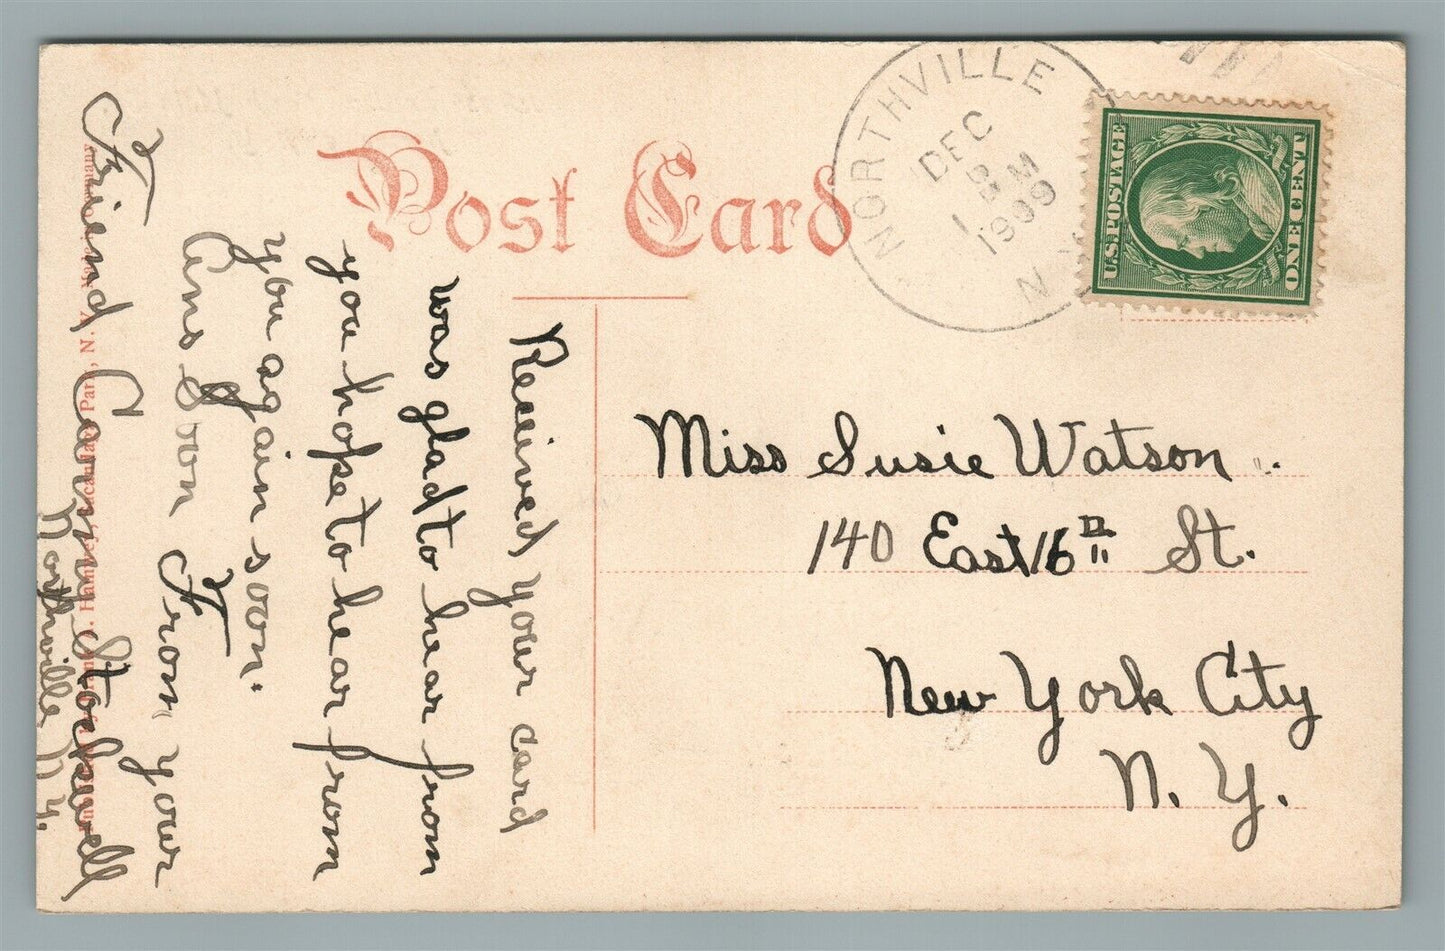 Post Card
NORTHVILLE
DEC
8
1 PM
1909
N.Y.
U.S. POSTAGE
ONE CENT
Miss Susie Watson
140 East 16th St.
New York City
N. Y.
Received your card
was glad to hear from
you hope to hear from
you again soon.
Ans Soon From your
Friend Canny Stockwell
Northville N.Y.
Park, N. Y.
Germany